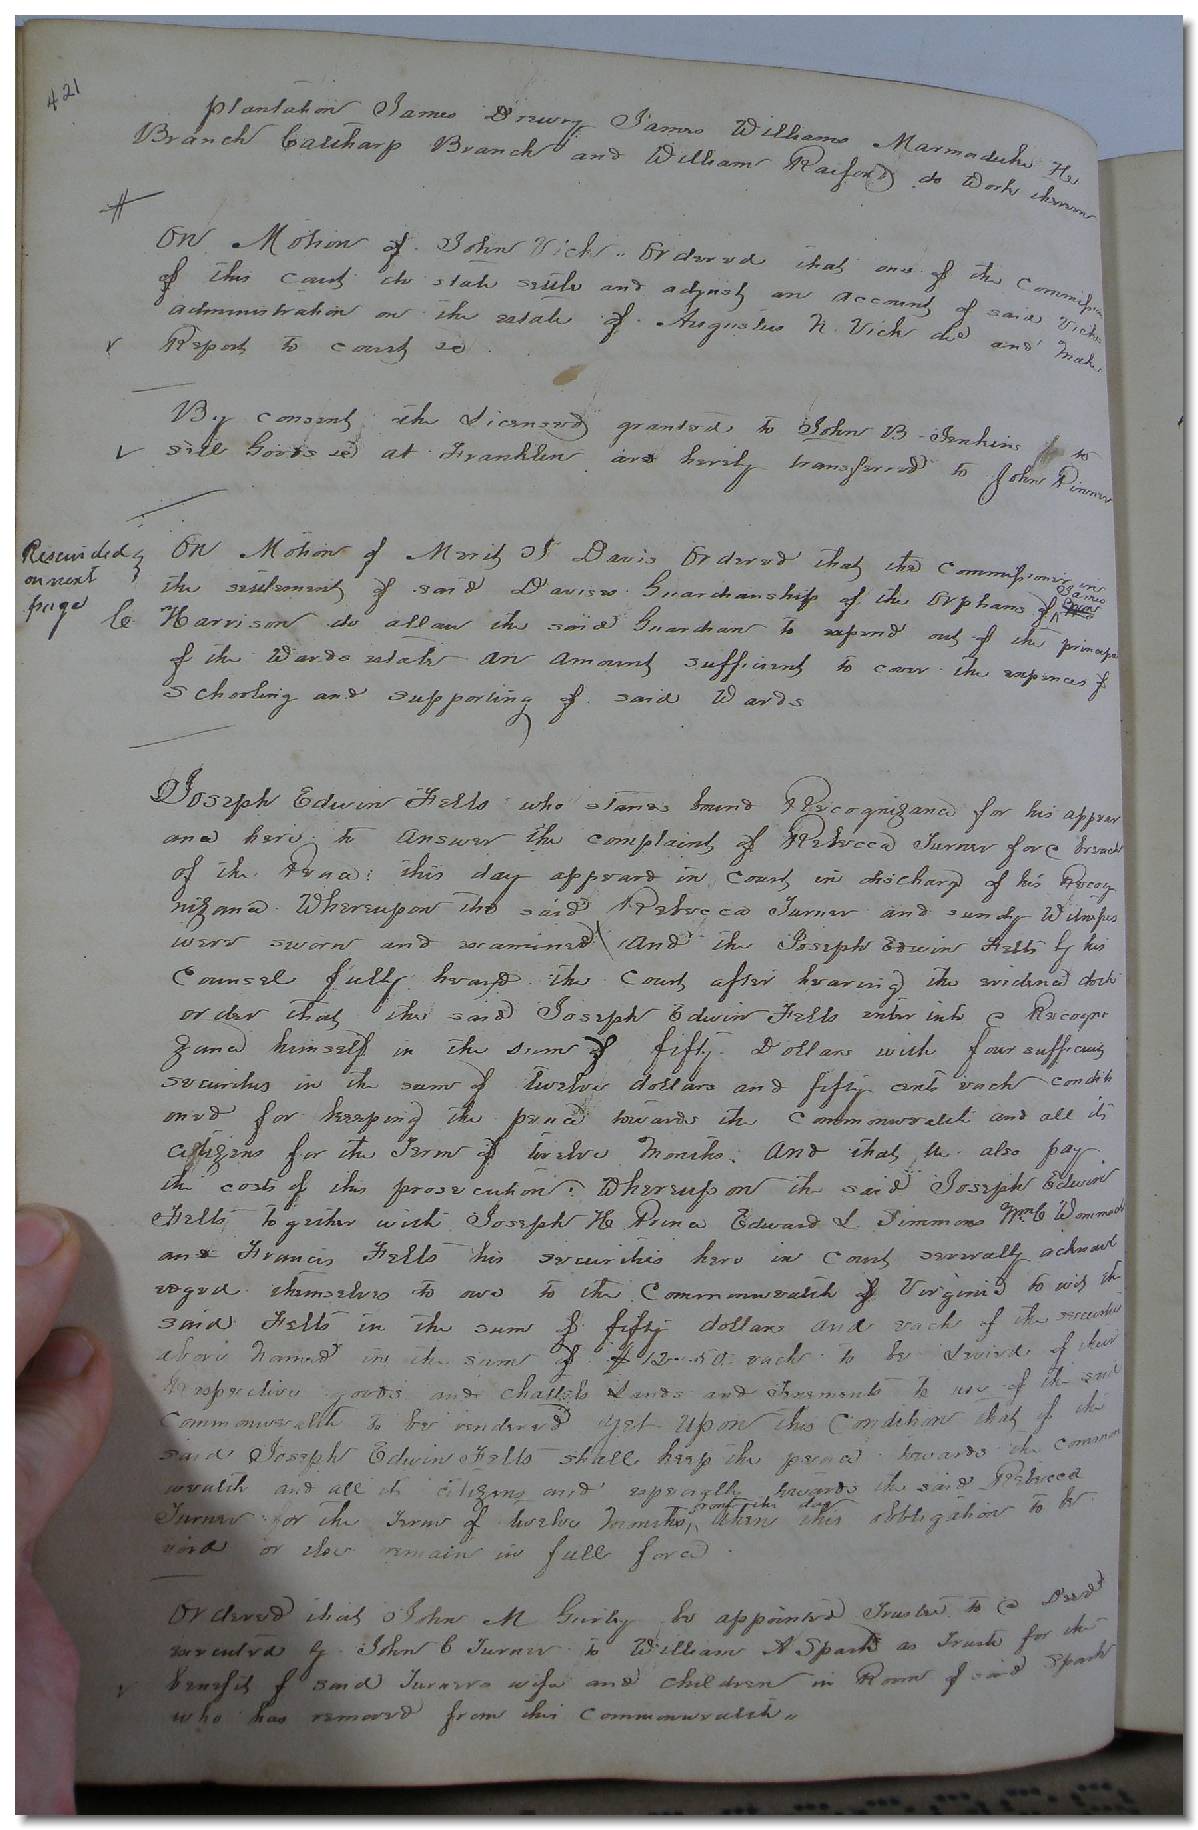 421
plantation James Drewry James Williams Marmaduke
Branch Caltharp Branch and William Raiford do work thereon
On Motion of John Vick Ordered that one of the Commissi
of this court do state settle and adjust an account of said Vicks
administration on the estate of Augustus N. Vick decd and make
Report to court &c
By consent the Licensed granted to John B Jenkins to
sell Goods &c at Franklin are hereby transferred to John Pinner
Rescinded
on next
page
On Motion of Merit Davis Ordered that the Commissioner in
the settlement of said Daviss Guardianship of the Orphans of James
Harrison do allow the said Guardian to expend out of the principal
of the Wards estate an amount sufficient to cover the expences of
schooling and supporting of said Wards
Joseph Edwin Felts who stands bound Recognizance for his appear
ance here to answer the complaint of Rebecca Turner for a breach
of the Peace: this day appeard in Court in discharg of his Recog
nizance Whereupon the said Rebecca Turner and sundy Witnesses
were sworn and examined And the Joseph Edwin Felts by his
Counsel fully heard the Court after hearing the evidence doth
order that the said Joseph Edwin Felts enter into a Recogni
zance himself in the sum of fifty Dollars with four sufficient
securities in the sum of twelve dollars and fifty cents each conditi
oned for keeping the peace towards the Commonwealth and all its
citizens for the Term of twelve Months. And that he also pay
the costs of this prosecution: Whereupon the said Joseph Edwin
Felts together with Joseph H Prince Edward L Simmons Wm C Wommack
and Francis Felts his securities here in Court severally acknowl
edged themselves to owe to the Commonwealth of Virginia to wit the
said Felts in the sum of fifty dollars and each of the securities
above named in the sum of $12.50 each to be Levied of their
Respective goods and chattels Lands and Tenements to use of the said
Commonwealth to be rendered yet upon this Condition that if the
said Joseph Edwin Felts shall keep the peace towards the common
wealth and all its citizens and especially towards the said Rebecca
Turner for the Term of twelve months from this day then this obbligation to be
void or else remain in full force
Ordered that John M Gurley be appointed Trustee to a Deed
executed by John C Turner to William A Spark as Truste for the
benefit of said Turners wife and children in Room of said Spark
who has removed from this Commonwealth